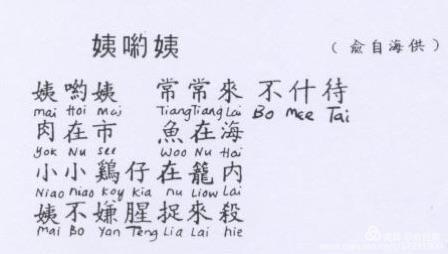 姨喲姨 （俞自海供）
姨喲姨 常常來 不什待
mai Hoi mai TiangTiang Lai Bo mee Tai
肉在市 魚在海
Yok Nu see Woo Nu Hai
小小鷄仔在籠内
Niao niao Koy Kia nu Liow Lai
姨不嫌腥捉來殺
Mai Bo Yan Teng Lia Lai hie